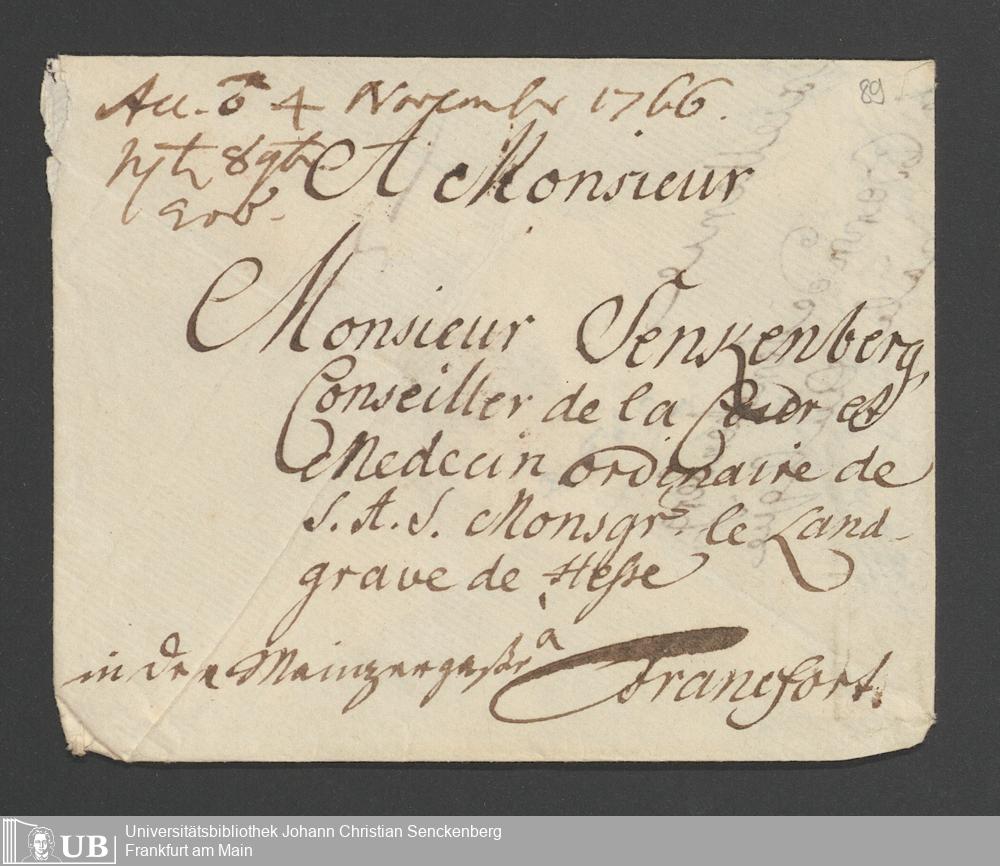 Acc. 4 November 1766.
89
A Monsieur
Monsieur Senkenberg,
Conseiller de la Cour et
Medecin ordinaire de
S. A. S. Monsgr. le Land-
grave de Hesse
à
in der Mainzergasse Francfort.
UB
Universitätsbibliothek Johann Christian Senckenberg
Frankfurt am Main